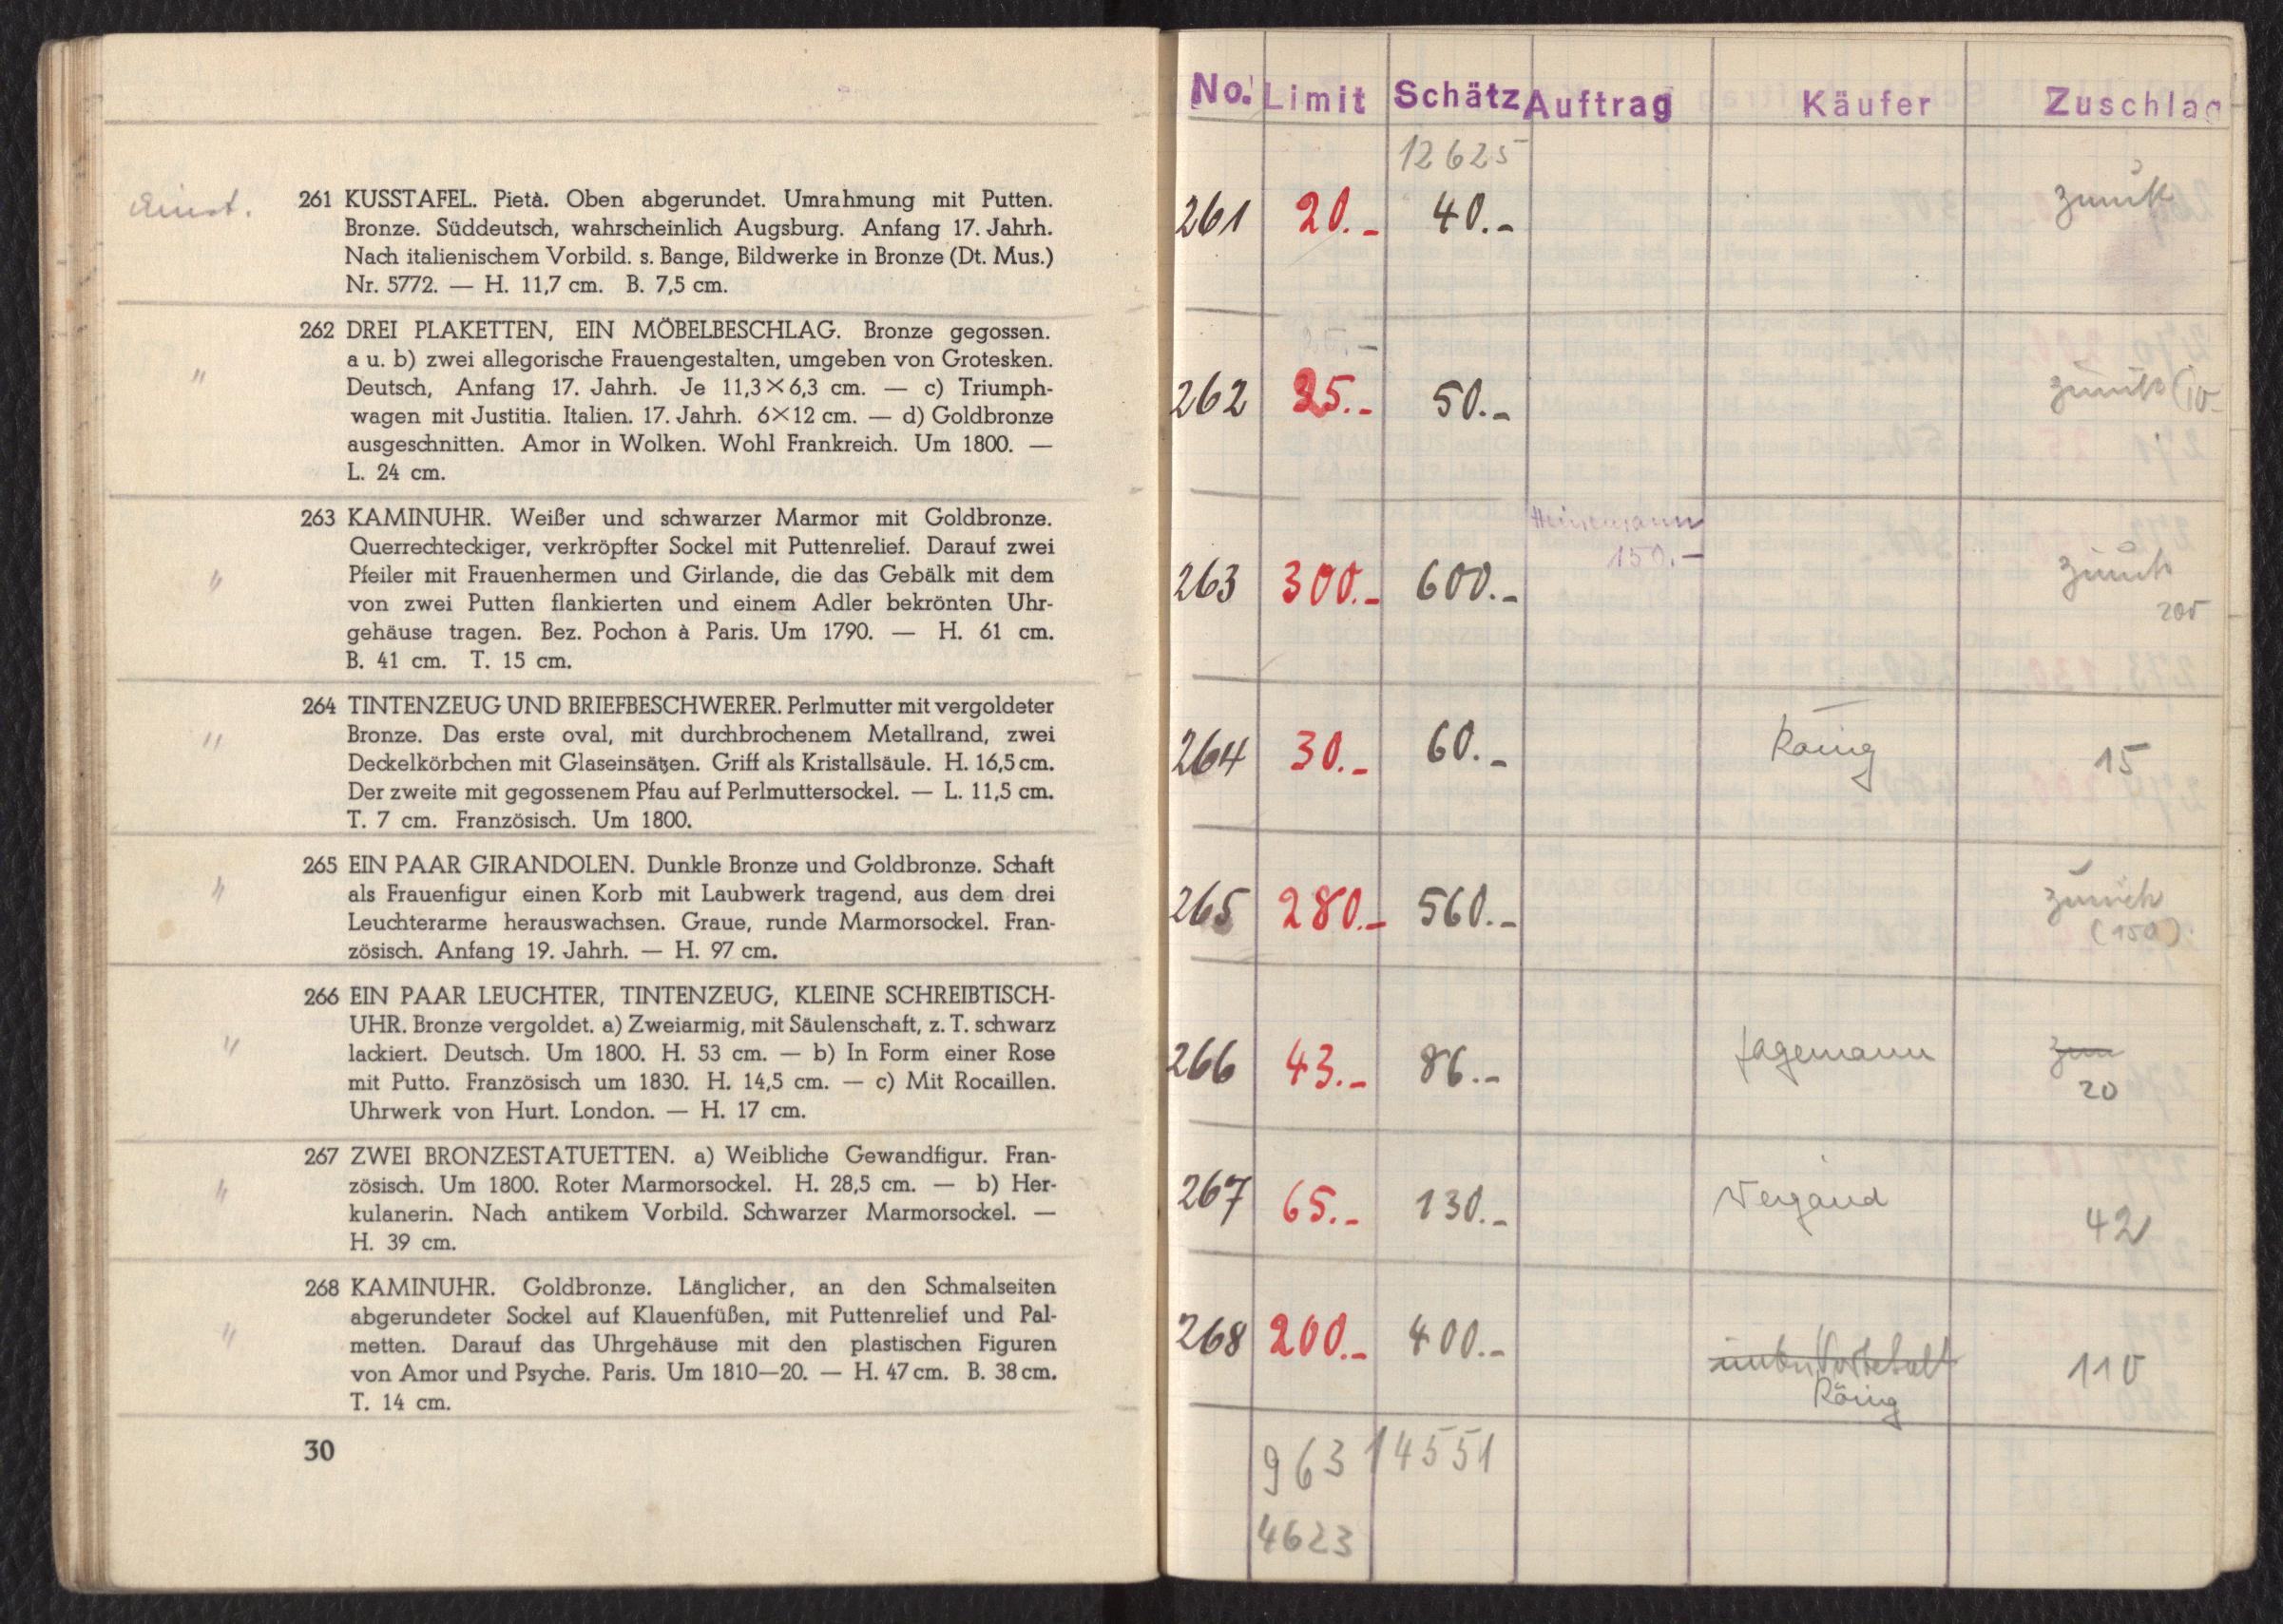 Einst.
261 KUSSTAFEL. Pietà. Oben abgerundet. Umrahmung mit Putten.
Bronze. Süddeutsch, wahrscheinlich Augsburg. Anfang 17. Jahrh.
Nach italienischem Vorbild. s. Bange, Bildwerke in Bronze (Dt. Mus.)
Nr. 5772. — H. 11,7 cm. B. 7,5 cm.
262 DREI PLAKETTEN, EIN MÖBELBESCHLAG. Bronze gegossen.
a u. b) zwei allegorische Frauengestalten, umgeben von Grotesken.
" Deutsch, Anfang 17. Jahrh. Je 11,3×6,3 cm. — c) Triumph-
wagen mit Justitia. Italien. 17. Jahrh. 6×12 cm. — d) Goldbronze
ausgeschnitten. Amor in Wolken. Wohl Frankreich. Um 1800. —
L. 24 cm.
263 KAMINUHR. Weißer und schwarzer Marmor mit Goldbronze.
Querrechteckiger, verkröpfter Sockel mit Puttenrelief. Darauf zwei
" Pfeiler mit Frauenhermen und Girlande, die das Gebälk mit dem
von zwei Putten flankierten und einem Adler bekrönten Uhr-
gehäuse tragen. Bez. Pochon à Paris. Um 1790. — H. 61 cm.
B. 41 cm. T. 15 cm.
264 TINTENZEUG UND BRIEFBESCHWERER. Perlmutter mit vergoldeter
" Bronze. Das erste oval, mit durchbrochenem Metallrand, zwei
Deckelkörbchen mit Glaseinsätzen. Griff als Kristallsäule. H. 16,5 cm.
Der zweite mit gegossenem Pfau auf Perlmuttersockel. — L. 11,5 cm.
T. 7 cm. Französisch. Um 1800.
265 EIN PAAR GIRANDOLEN. Dunkle Bronze und Goldbronze. Schaft
" als Frauenfigur einen Korb mit Laubwerk tragend, aus dem drei
Leuchterarme herauswachsen. Graue, runde Marmorsockel. Fran-
zösisch. Anfang 19. Jahrh. — H. 97 cm.
266 EIN PAAR LEUCHTER, TINTENZEUG, KLEINE SCHREIBTISCH-
UHR. Bronze vergoldet. a) Zweiarmig, mit Säulenschaft, z. T. schwarz
" lackiert. Deutsch. Um 1800. H. 53 cm. — b) In Form einer Rose
mit Putto. Französisch um 1830. H. 14,5 cm. — c) Mit Rocaillen.
Uhrwerk von Hurt. London. — H. 17 cm.
267 ZWEI BRONZESTATUETTEN. a) Weibliche Gewandfigur. Fran-
" zösisch. Um 1800. Roter Marmorsockel. H. 28,5 cm. — b) Her-
kulanerin. Nach antikem Vorbild. Schwarzer Marmorsockel. —
H. 39 cm.
268 KAMINUHR. Goldbronze. Länglicher, an den Schmalseiten
abgerundeter Sockel auf Klauenfüßen, mit Puttenrelief und Pal-
" metten. Darauf das Uhrgehäuse mit den plastischen Figuren
von Amor und Psyche. Paris. Um 1810—20. — H. 47 cm. B. 38 cm.
T. 14 cm.
30
No. Limit Schätz Auftrag Käufer Zuschlag
12625
261 20.- 40.- zurück
262 25.- 50.- zurück (10-
Heinemann
150.-
263 300.- 600.- zurück
200
264 30.- 60.- Rönig 15
265 280.- 560.- zurück
(150)
266 43.- 86.- Jagemann zur
20
267 65.- 130.- Wegand 42
268 200.- 400.- unter Vorbehalt 110
Rönig
963 14551
4623